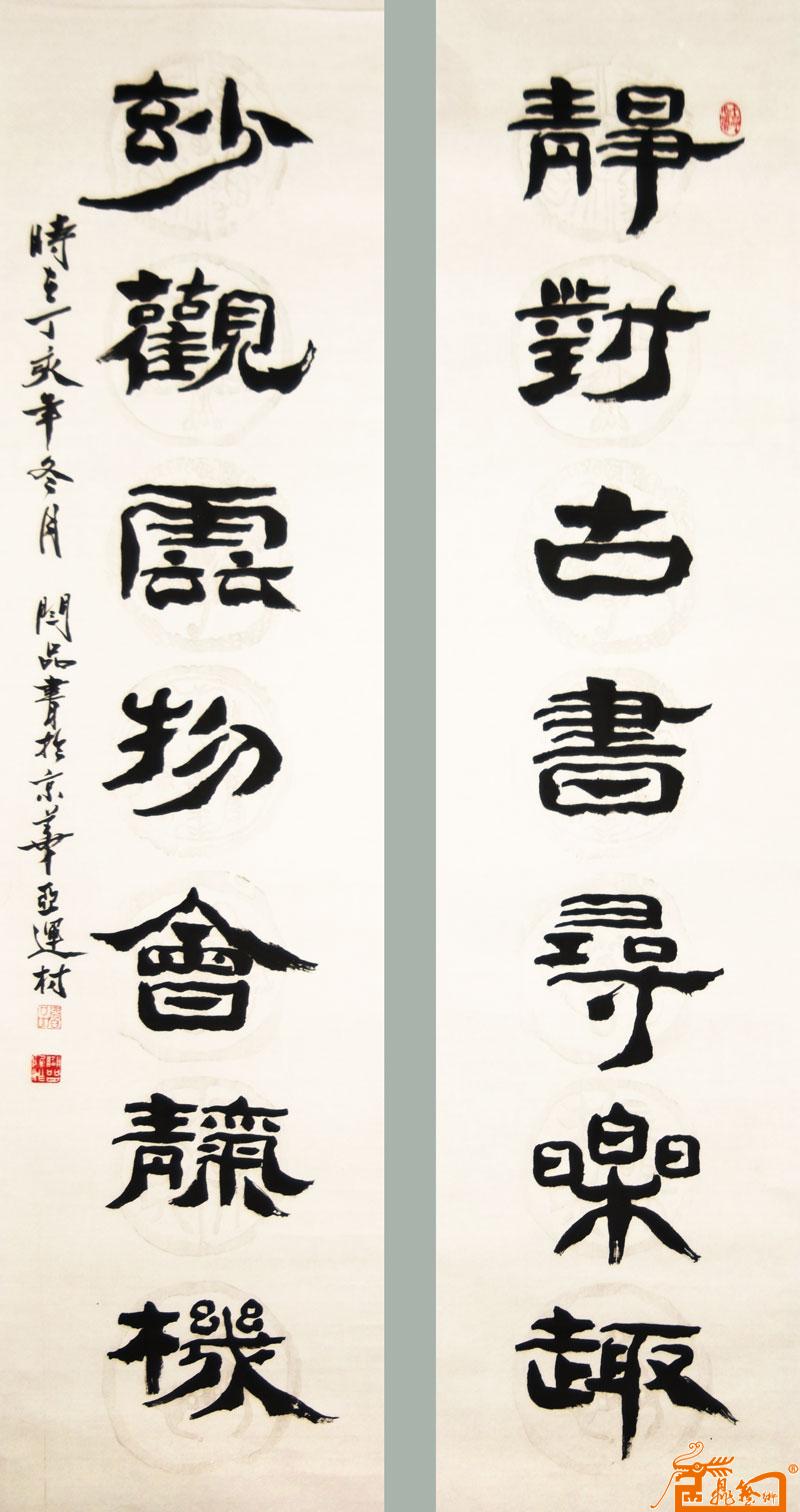 靜對古書尋樂趣
玅觀雲物會靝機
時在丁亥年冬月 閆品書於京華亞運村